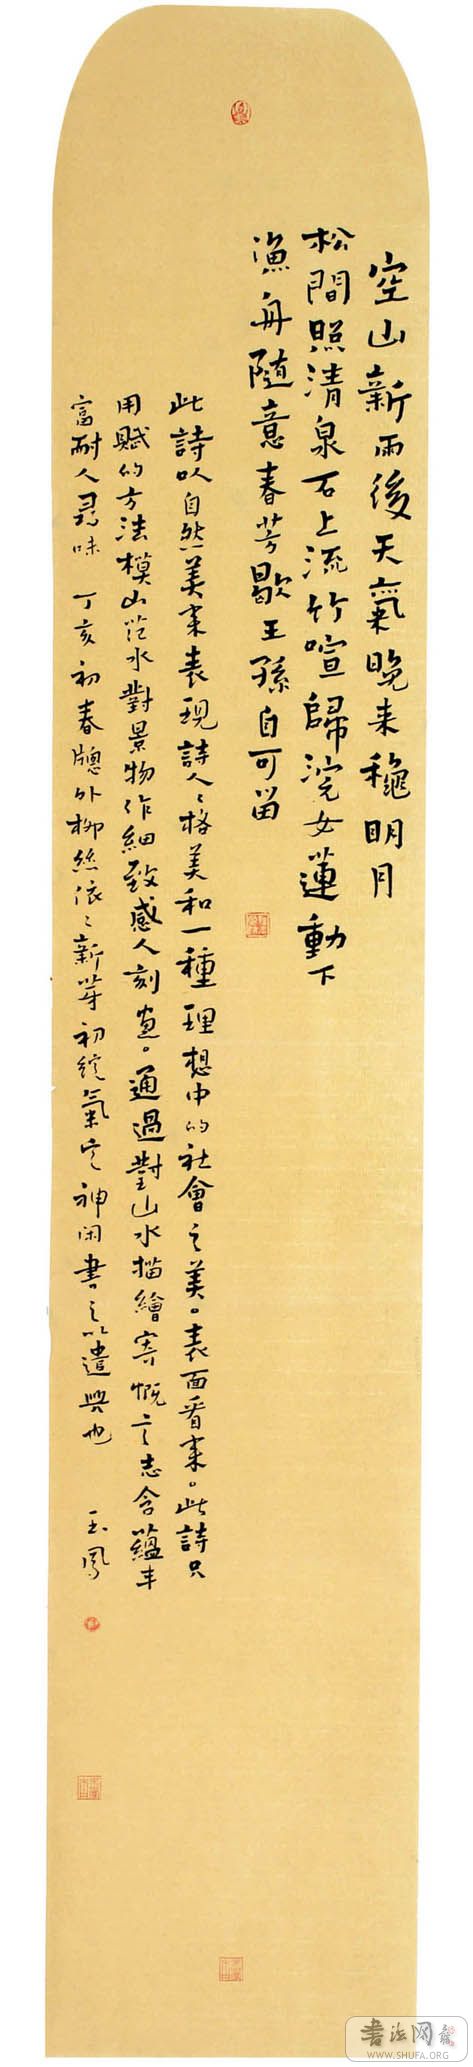 空山新雨後天氣晚来穐明月
松間照清泉石上流竹喧歸浣女蓮動下
漁舟隨意春芳歇王孫自可留
此詩以自然美来表現詩人人格美和一種理想中的社會之美。表面看来。此詩只
用賦的方法模山范水對景物作細致感人刻畫。通過對山水描繪寄慨言志含蘊丰
富耐人尋味 丁亥初春窗外柳絲依依新芽初綻氣定神闲書之以遣興也 玉鳳
書法网
WWW.SHUFA.ORG